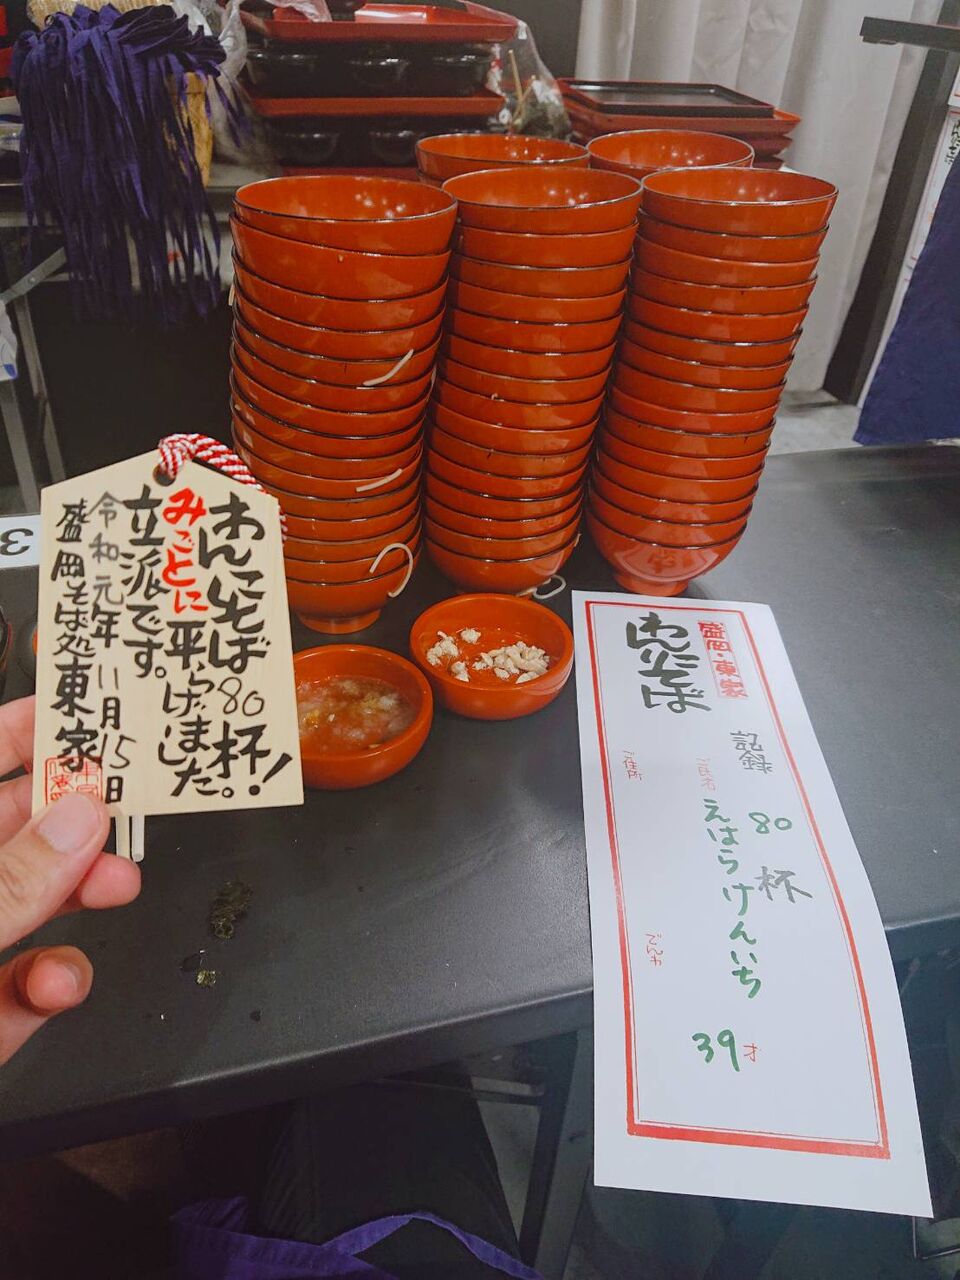 わんこそば80杯！
みごとに平らげました。
立派です。
令和元年11月15日
盛岡そば処東家
盛岡・東家
わんこそば
記録 80杯
ご氏名 えはらけんいち
39才
ご住所
でんわ
3